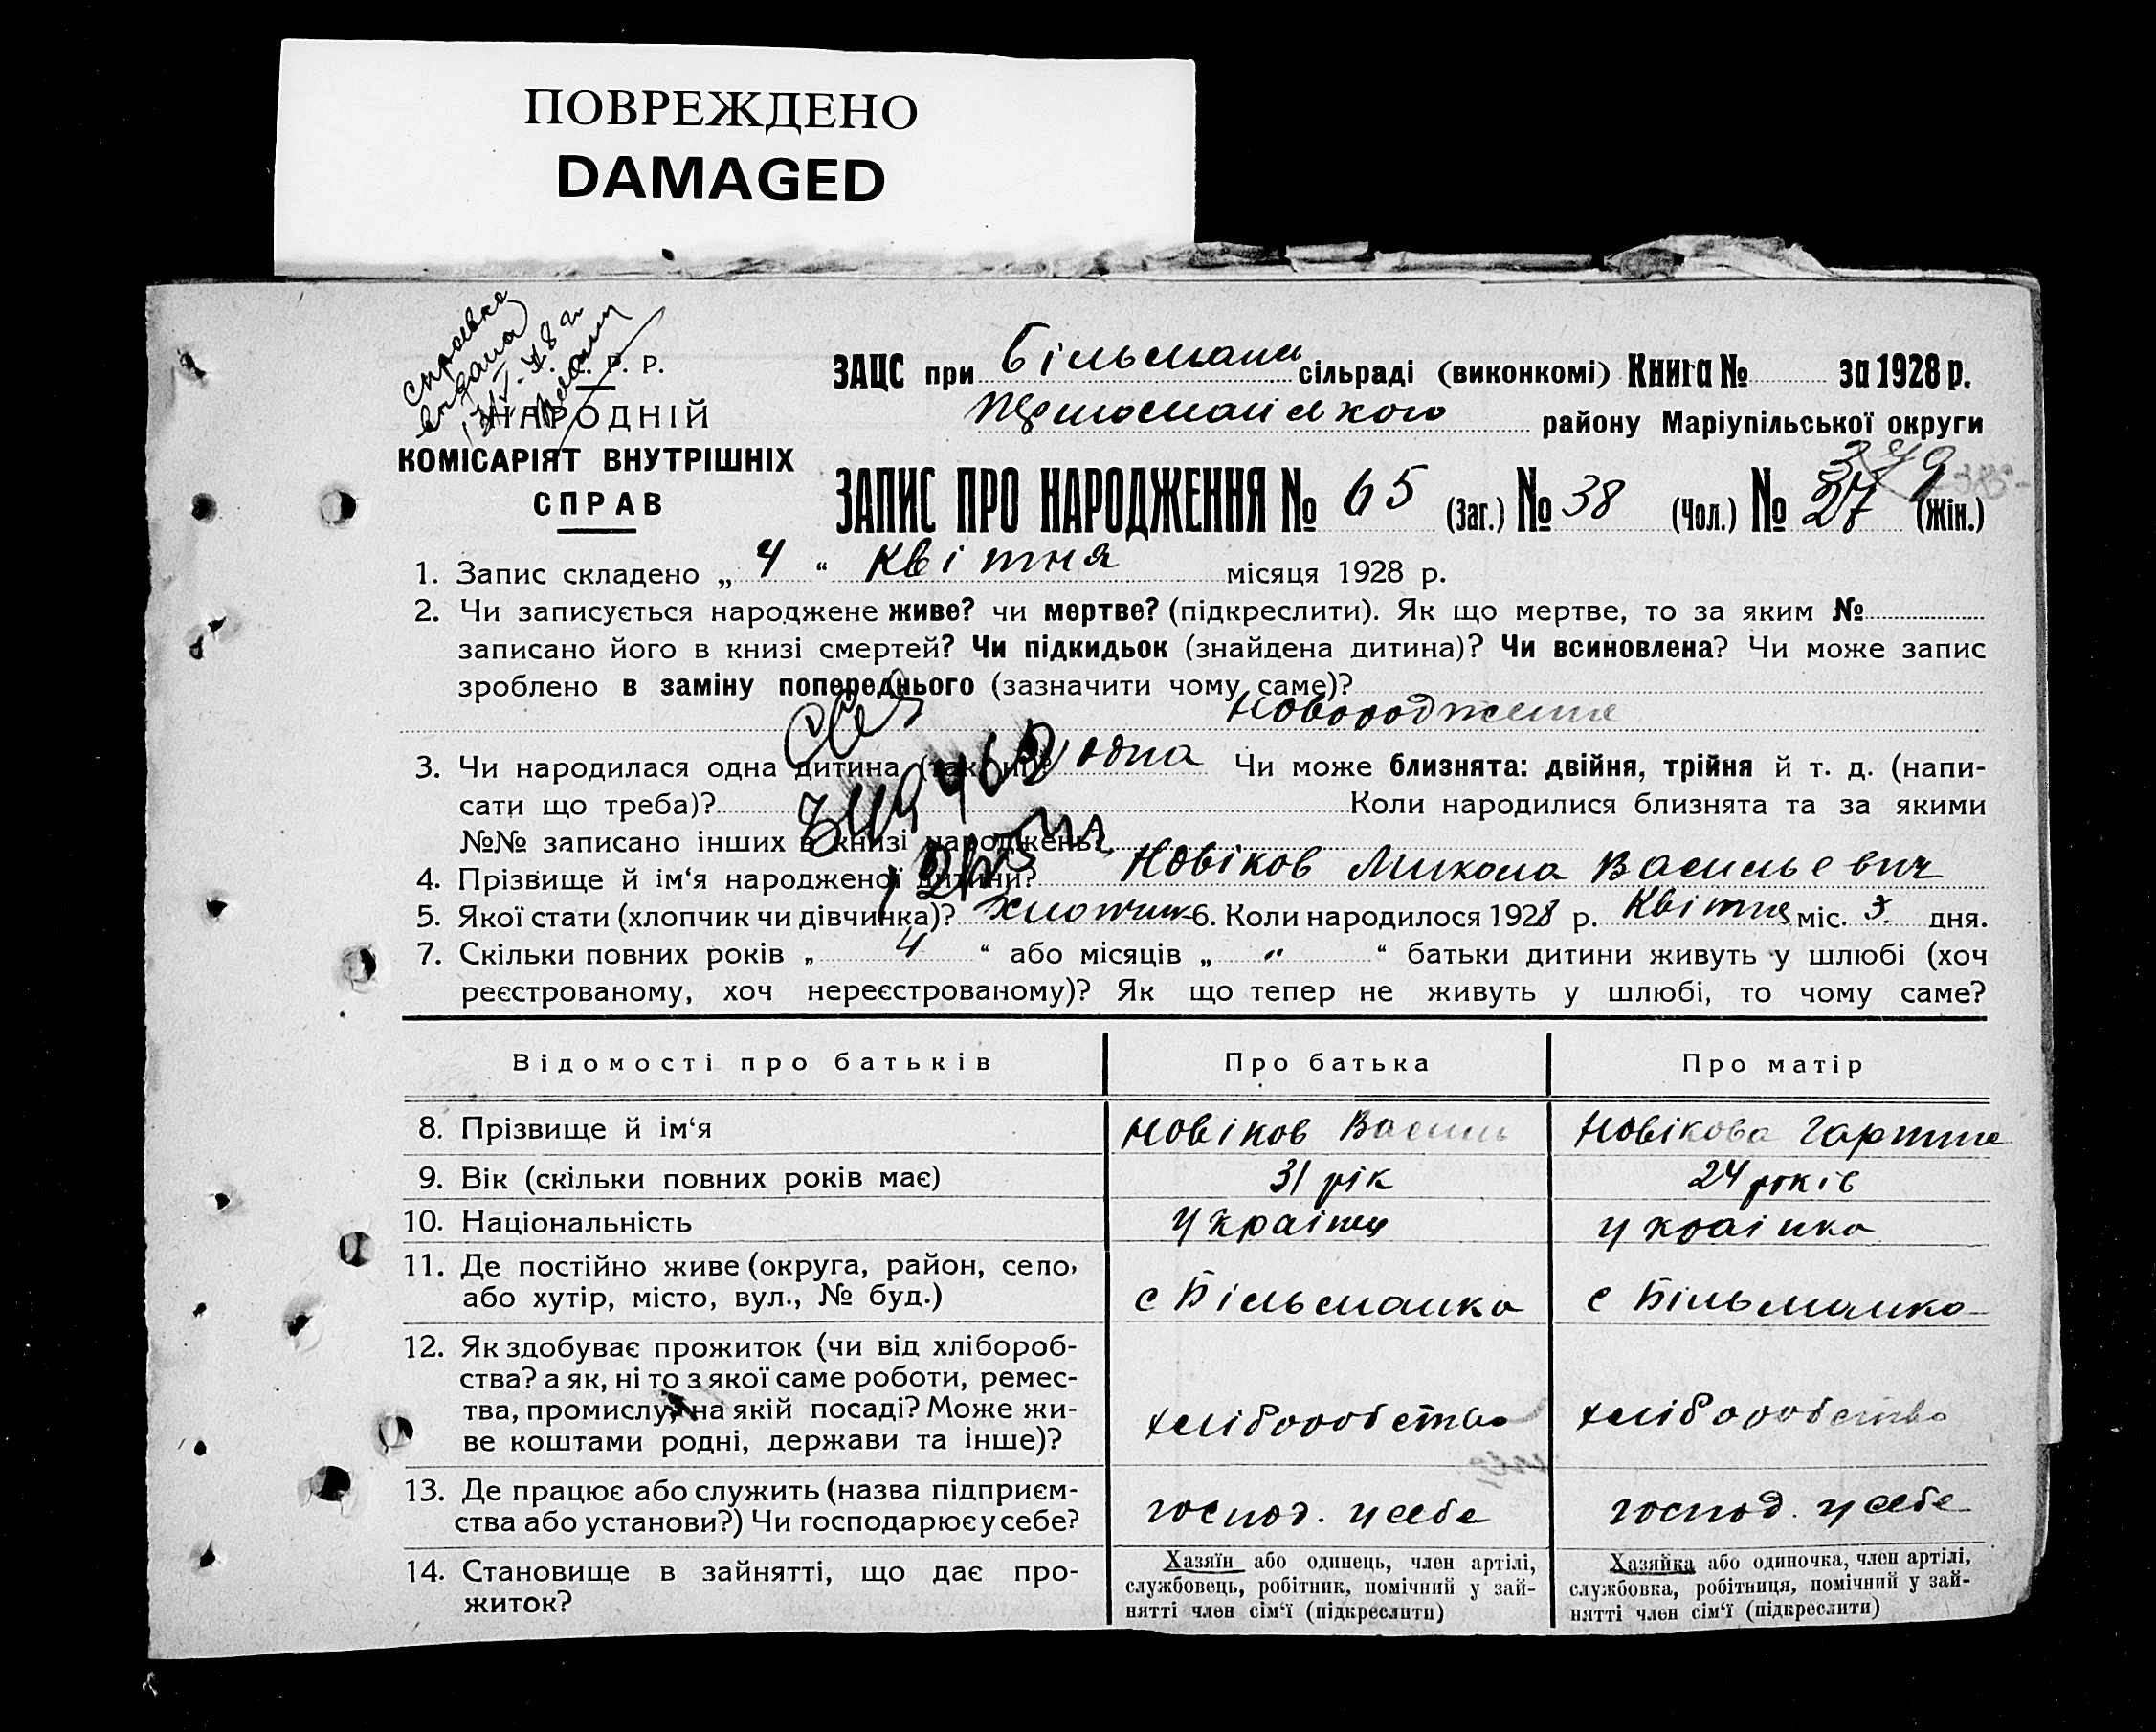 ПОВРЕЖДЕНО
DAMAGED
справка
видана
Р.
НАРОДНІЙ
КОМІСАРІЯТ ВНУТРІШНІХ
СПРАВ
ЗАЦС при Більмаць сільраді (виконкомі) Книга № за 1928 р.
Першомайського району Маріупільської округи
379
ЗАПИС ПРО НАРОДЖЕННЯ № 65 (Заг.) № 38 (Чол.) № 27 (Жін.)
1. Запис складено „ 4 “ Квітня місяця 1928 р.
2. Чи записується народжене живе? чи мертве? (підкреслити). Як що мертве, то за яким №
записано його в книзі смертей? Чи підкидьок (знайдена дитина)? Чи всиновлена? Чи може запис
зроблено в заміну попереднього (зазначити чому саме)?
новородження
3. Чи народилася одна дитина одна Чи може близнята: двійня, трійня й т. д. (напи-
сати що треба)? Коли народилися близнята та за якими
№№ записано інших в книзі народжень?
4. Прізвище й ім‘я народженої дитини? Новіков Микола Васильевич
5. Якої стати (хлопчик чи дівчинка)? хлопчик 6. Коли народилося 1928 р. Квітня міс. 3. дня.
7. Скільки повних років „ 4 “ або місяців „ “ батьки дитини живуть у шлюбі (хоч
реєстрованому, хоч нереєстрованому)? Як що тепер не живуть у шлюбі, то чому саме?
Відомості про батьків Про батька Про матір
8. Прізвище й ім‘я Новіков Василь Новікова
9. Вік (скільки повних років має) 31 рік 24 років
10. Національність українц українка
11. Де постійно живе (округа, район, село,
або хутір, місто, вул., № буд.) с Більманка с Більманка
12. Як здобуває прожиток (чи від хлібороб-
ства? а як, ні то з якої саме роботи, ремес-
тва, промислу, на якій посаді? Може жи-
ве коштами родні, держави та інше)? хліборобство хліборобство
13. Де працює або служить (назва підприєм-
ства або установи?) Чи господарює у себе? господ. у себе господ. у себе
14. Становище в зайнятті, що дає про-
житок?
Хазяїн або одинець, член артілі,
службовець, робітник, помічний у зай-
нятті член сім‘ї (підкреслити)
Хазяйка або одиночка, член артілі,
службовка, робітниця, помічний у зай-
нятті член сім‘ї (підкреслити)